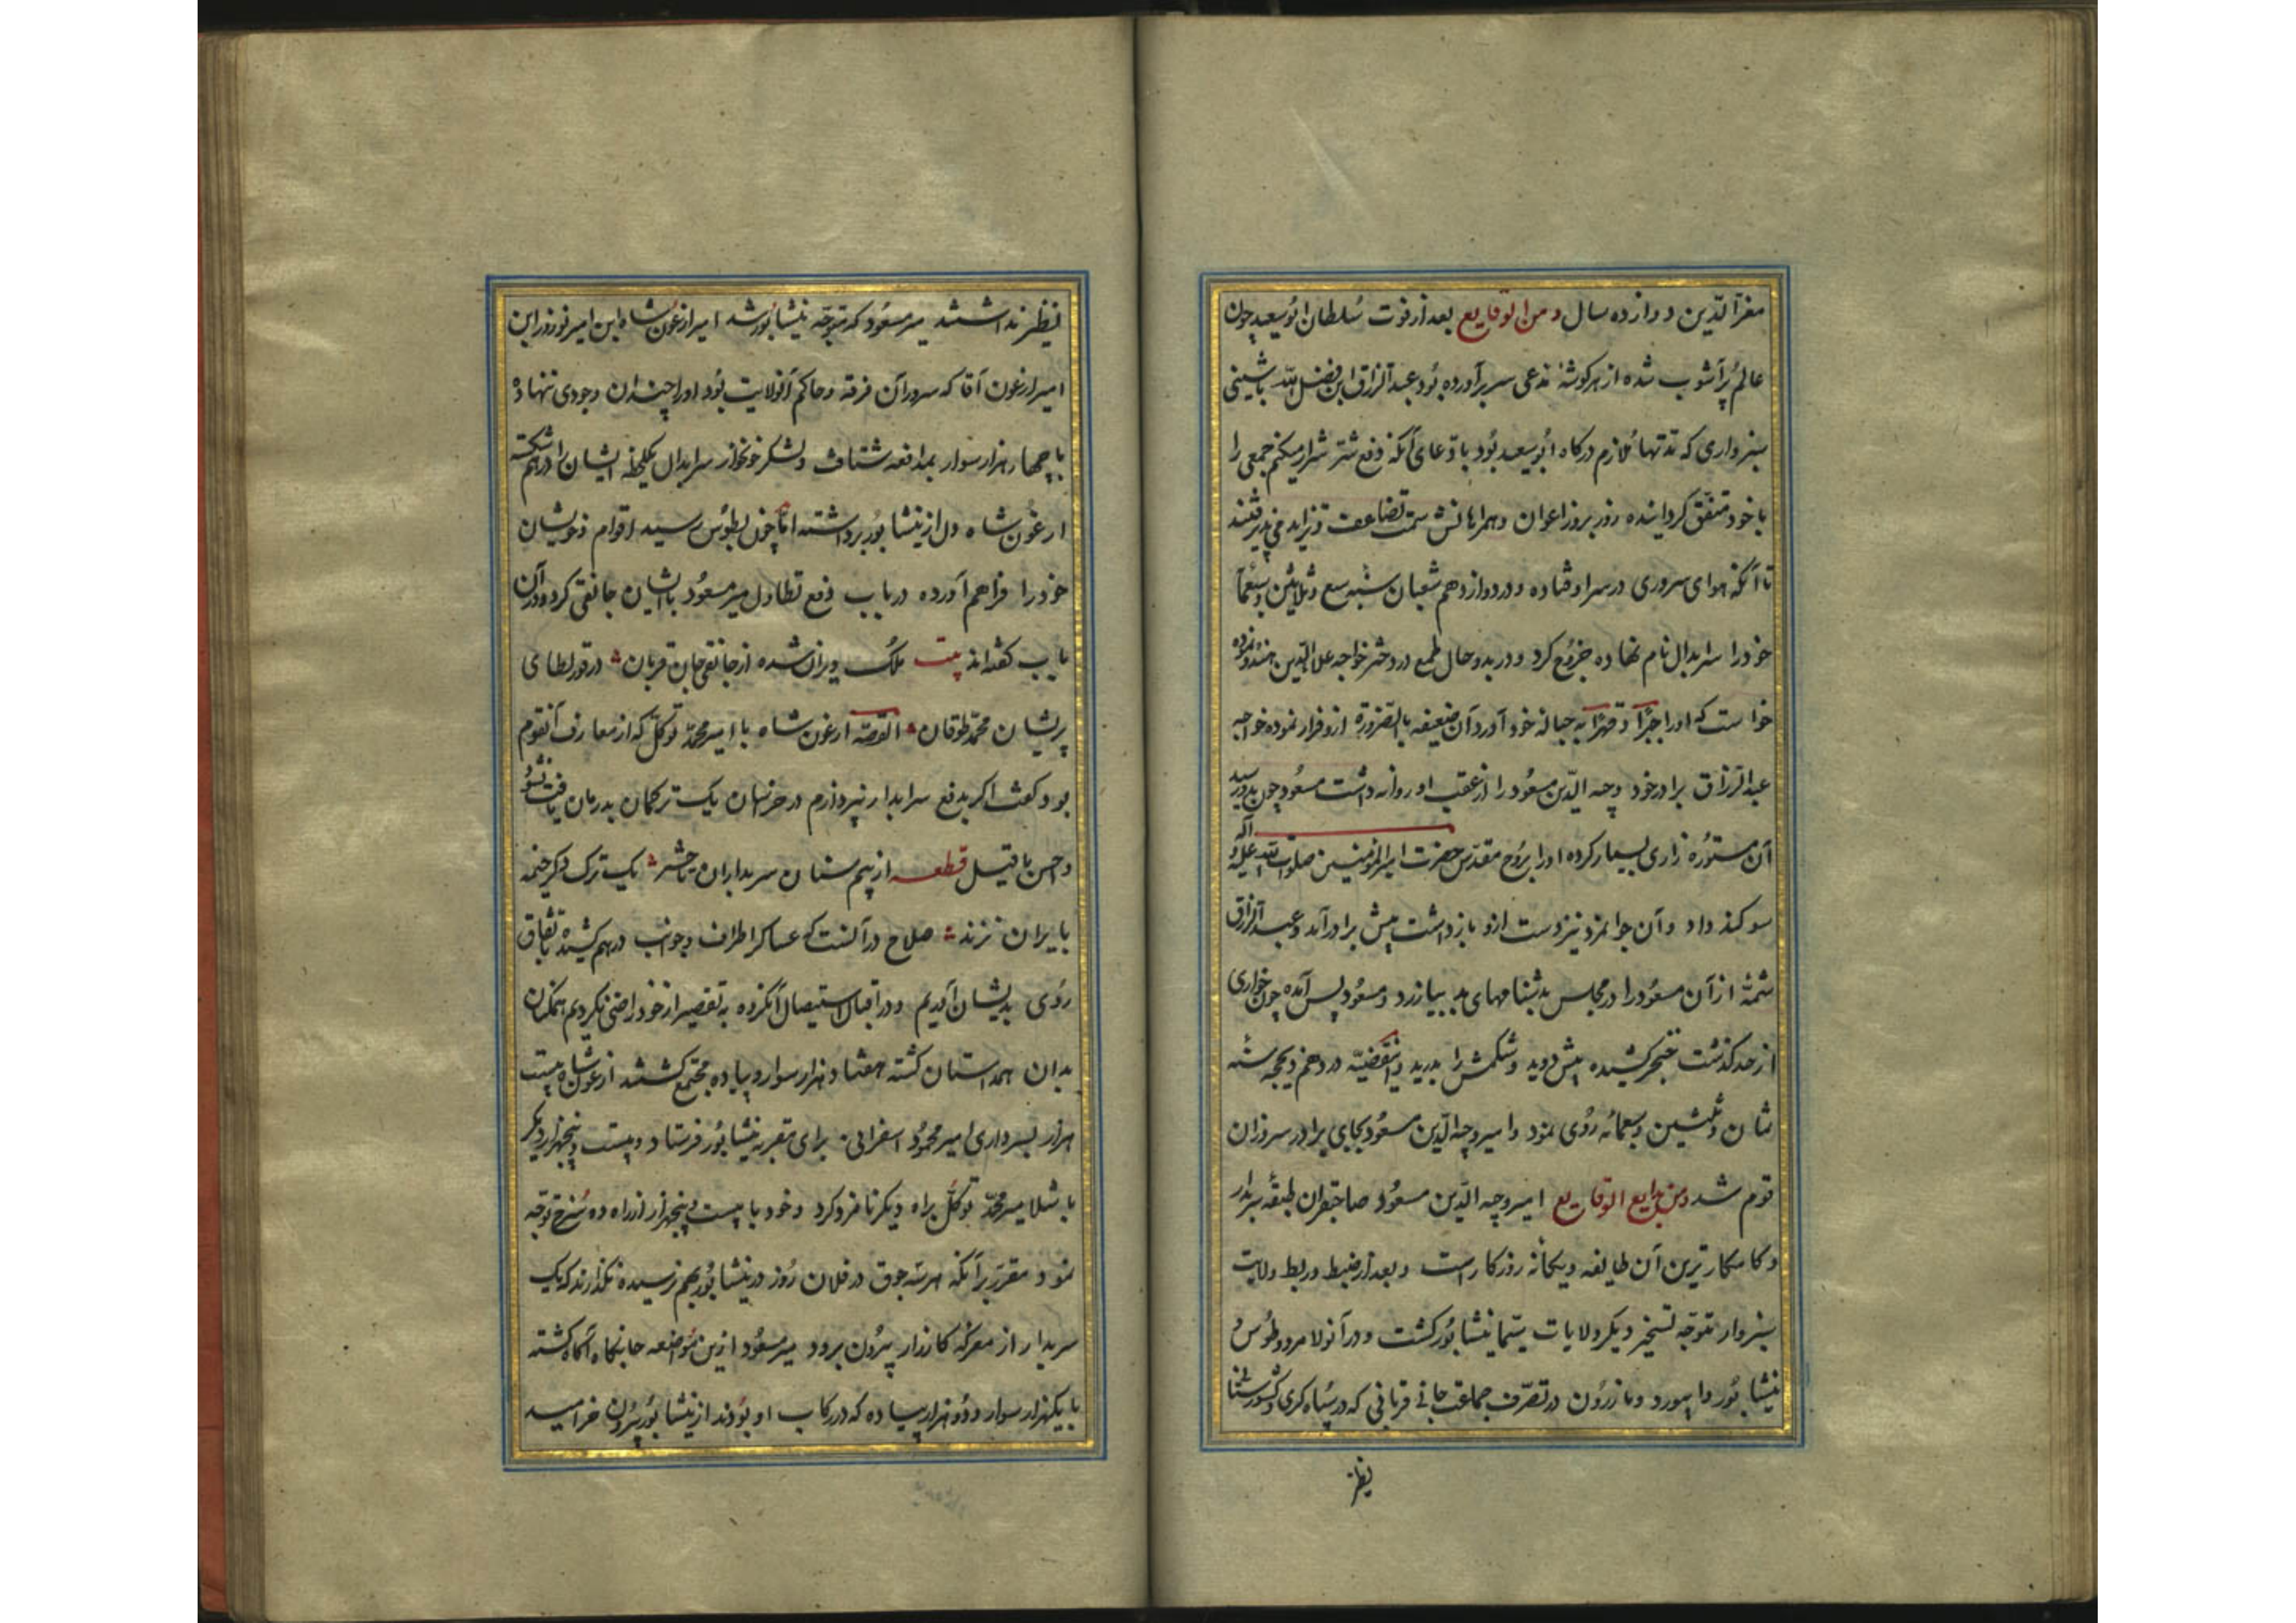 معزالدین دوازده سال و من الوقایع بعد از فوت سلطان ابوسعید چون
عالم پرآشوب شده از هر کوشهٔ مدعی سر برآورده بود عبدالرزاق ابن فضل الله باشتینی
سبزواری که مدتها ملازم درکاه ابوسعید بود بادعای آنکه دفع شر اشرار میکنم جمعی را
با خود متفق کردانیده روز بروز اعوان و همراهانش سمت تضاعف و تزاید می پذیرفتند
تا آنکه هوای سروری در سر او فتاده و در دوازدهم شعبان سنه سبع و ثلاثین و سبعمآ
خود را سرابدال نام نهاده خروج کرد و در بدو حال طمع در دختر خواجه علاالدین هندو نموده
خواست که او را جبرًا و قهرًا به حباله خود آورد آن ضعیفه بالضرورة ازو فرار نموده خواجه
عبدالرزاق برادر خود وجه الدین مسعود را از عقب او روانه داشت مسعود چون بدو رسید
آن مستوره زاری بسیار کرده او را بروح مقدس حضرت امیرالمومنین صلوات الله علیه و آله
سوکند داد و آن جوانمرد نیز دست ازو بازداشت پیش برادر آمد و عبدالرزاق
شمهٔ از آن مسعود را در مجلس بدشنامهای بد بیازرد و مسعود پس آمده چون خواری
از حد کذشت خنجر کشیده پیش دوید و شکمش را بدرید و این قضیه در دهم ذیحجه سنه
ثمان و ثلثین و سبعمائه روی نمود و امیر وجه الدین مسعود بجای برادر سرور آن
قوم شد و من بدایع الوقایع امیر وجه الدین مسعود صاحبقران طبقه سربدار
و کامکارترین آن طایفه و یکانه روزکار است و بعد از ضبط و ربط ولایت
سبزوار متوجه تسخیر دیکر ولایات سیما نیشابور کشت و در آنولا مرو و طوس و
نیشابور و ابیورد و مازرون در تصرف جماعت جانی قربانی که در سپاه کری و کشورستانی
نظیر
نظیر نداشتند میر مسعود که متوجه نیشابور شد امیر ارغون شاه ابن امیر نوروز ابن
امیر ارغون آقا که سرور آن فرقه و حاکم آنولایت بود او را چندان وجودی ننهاده
با چهار هزار سوار بمدافعه شتافت و لشکر خونخوار سرابدال بیکلحظه ایشان را درهم شکسته
ارغون شاه دل از نیشابور برداشته اما چون بطوس رسید اقوام و خویشان
خود را فراهم آورده در باب دفع تطاول میر مسعود با ایشان جانقی کرد و در آن
باب کفته اند بیت ملک ویران شده از جانقی جان قربان در قورلطای
پریشان محمد طوقان القصه ارغون شاه با امیر محمد توکل که از معارف آنقوم
بود کفت اکر بدفع سرابدار نپردازم در خراسان یک ترکمان بدرمان یافت نشود
و احسن ما قیل قطعه از بیم سنان سربداران تا حشر یک ترک دکر خیمه
بایران نزند صلاح در آنست که عساکر اطراف و جوانب درهم کشیده باتفاق
روی بدیشان آریم و در اقبال استیصال آنکروه به تقصیر از خود راضی نکردیم همکنان
بدان همداستان کشته هفتاد هزار سوار و پیاده مجتمع کشتند ارغون شاه بیست
هزار بسرداری امیر محمود اسفراینی برای مقربه نیشابور فرستاد و بیست و پنجهزار دیکر
باشلامیر محمد توکل براه دیکر نامزد کرد و خود با بیست و پنجهزار از راه ده سرخ توجه
نمود و مقرر برآنکه هر سه جوق در فلان روز در نیشابور بهم رسیده نکذارند که یک
سربدار از معرکه کارزار بیرون برود میر مسعود ازین مواضعه جانکاه آکاه کشته
با یکهزار سوار و دو هزار پیاده که در رکاب او بودند از نیشابور بیرون خرامید